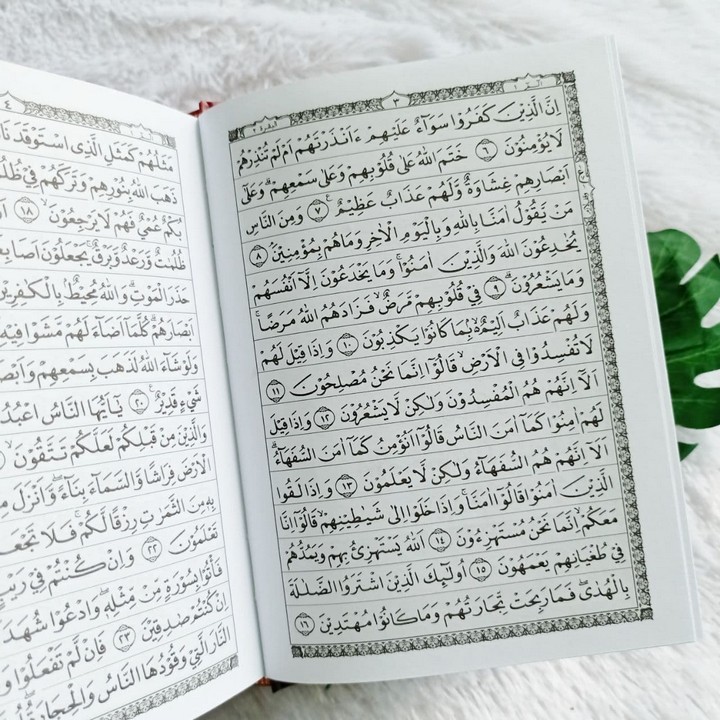 ٣
البقرة ٢
اِنَّ الَّذِيْنَ كَفَرُوْا سَوَآءٌ عَلَيْهِمْ ءَاَنْذَرْتَهُمْ اَمْ لَمْ تُنْذِرْهُمْ
لَا يُؤْمِنُوْنَ ٦ خَتَمَ اللّٰهُ عَلٰى قُلُوْبِهِمْ وَعَلٰى سَمْعِهِمْ ۗ وَعَلٰٓى
اَبْصَارِهِمْ غِشَاوَةٌ وَّلَهُمْ عَذَابٌ عَظِيْمٌ ࣖ ٧ وَمِنَ النَّاسِ
مَنْ يَّقُوْلُ اٰمَنَّا بِاللّٰهِ وَبِالْيَوْمِ الْاٰخِرِ وَمَا هُمْ بِمُؤْمِنِيْنَ ۘ ٨
يُخٰدِعُوْنَ اللّٰهَ وَالَّذِيْنَ اٰمَنُوْا ۚ وَمَا يَخْدَعُوْنَ اِلَّآ اَنْفُسَهُمْ
وَمَا يَشْعُرُوْنَ ۗ ٩ فِيْ قُلُوْبِهِمْ مَّرَضٌ ۙ فَزَادَهُمُ اللّٰهُ مَرَضًا ۚ
وَلَهُمْ عَذَابٌ اَلِيْمٌ ۢ ەۙ بِمَا كَانُوْا يَكْذِبُوْنَ ١٠ وَاِذَا قِيْلَ لَهُمْ
لَا تُفْسِدُوْا فِى الْاَرْضِ ۙ قَالُوْٓا اِنَّمَا نَحْنُ مُصْلِحُوْنَ ١١
اَلَآ اِنَّهُمْ هُمُ الْمُفْسِدُوْنَ وَلٰكِنْ لَّا يَشْعُرُوْنَ ١٢ وَاِذَا قِيْلَ
لَهُمْ اٰمِنُوْا كَمَآ اٰمَنَ النَّاسُ قَالُوْٓا اَنُؤْمِنُ كَمَآ اٰمَنَ السُّفَهَاۤءُ ۗ
اَلَآ اِنَّهُمْ هُمُ السُّفَهَاۤءُ وَلٰكِنْ لَّا يَعْلَمُوْنَ ١٣ وَاِذَا لَقُوا
الَّذِيْنَ اٰمَنُوْا قَالُوْٓا اٰمَنَّا ۚ وَاِذَا خَلَوْا اِلٰى شَيٰطِيْنِهِمْ ۙ قَالُوْٓا اِنَّا
مَعَكُمْ ۙ اِنَّمَا نَحْنُ مُسْتَهْزِءُوْنَ ١٤ اَللّٰهُ يَسْتَهْزِئُ بِهِمْ وَيَمُدُّهُمْ
فِيْ طُغْيَانِهِمْ يَعْمَهُوْنَ ١٥ اُولٰۤىِٕكَ الَّذِيْنَ اشْتَرَوُا الضَّلٰلَةَ
بِالْهُدٰى ۖ فَمَا رَبِحَتْ تِّجَارَتُهُمْ وَمَا كَانُوْا مُهْتَدِيْنَ ١٦
٤
مَثَلُهُمْ كَمَثَلِ الَّذِى اسْتَوْقَدَ
ذَهَبَ اللّٰهُ بِنُوْرِهِمْ وَتَرَكَهُمْ فِيْ
بُكْمٌ عُمْيٌ فَهُمْ لَا يَرْجِعُوْنَ ۙ ١٨
ظُلُمٰتٌ وَّرَعْدٌ وَّبَرْقٌ ۚ يَجْعَلُوْنَ اَصَابِعَ
حَذَرَ الْمَوْتِ ۗ وَاللّٰهُ مُحِيْطٌ ۢ بِالْكٰفِرِيْنَ
اَبْصَارَهُمْ ۗ كُلَّمَآ اَضَاۤءَ لَهُمْ مَّشَوْا فِيْهِ
وَلَوْ شَاۤءَ اللّٰهُ لَذَهَبَ بِسَمْعِهِمْ
شَيْءٍ قَدِيْرٌ ࣖ ٢٠ يٰٓاَيُّهَا النَّاسُ اعْبُدُ
وَالَّذِيْنَ مِنْ قَبْلِكُمْ لَعَلَّكُمْ تَتَّقُوْنَ ۙ
الْاَرْضَ فِرَاشًا وَّالسَّمَاۤءَ بِنَاۤءً ۖ وَّاَنْزَلَ مِنَ
بِهٖ مِنَ الثَّمَرٰتِ رِزْقًا لَّكُمْ ۚ فَلَا
تَعْلَمُوْنَ ٢٢ وَاِنْ كُنْتُمْ فِيْ رَيْبٍ
فَأْتُوْا بِسُوْرَةٍ مِّنْ مِّثْلِهٖ ۖ وَادْعُوْا
اِنْ كُنْتُمْ صٰدِقِيْنَ ٢٣ فَاِنْ لَّمْ تَفْعَلُوْا
النَّارَ الَّتِيْ وَقُوْدُهَا النَّاسُ وَالْحِجَارَةُ ۖ